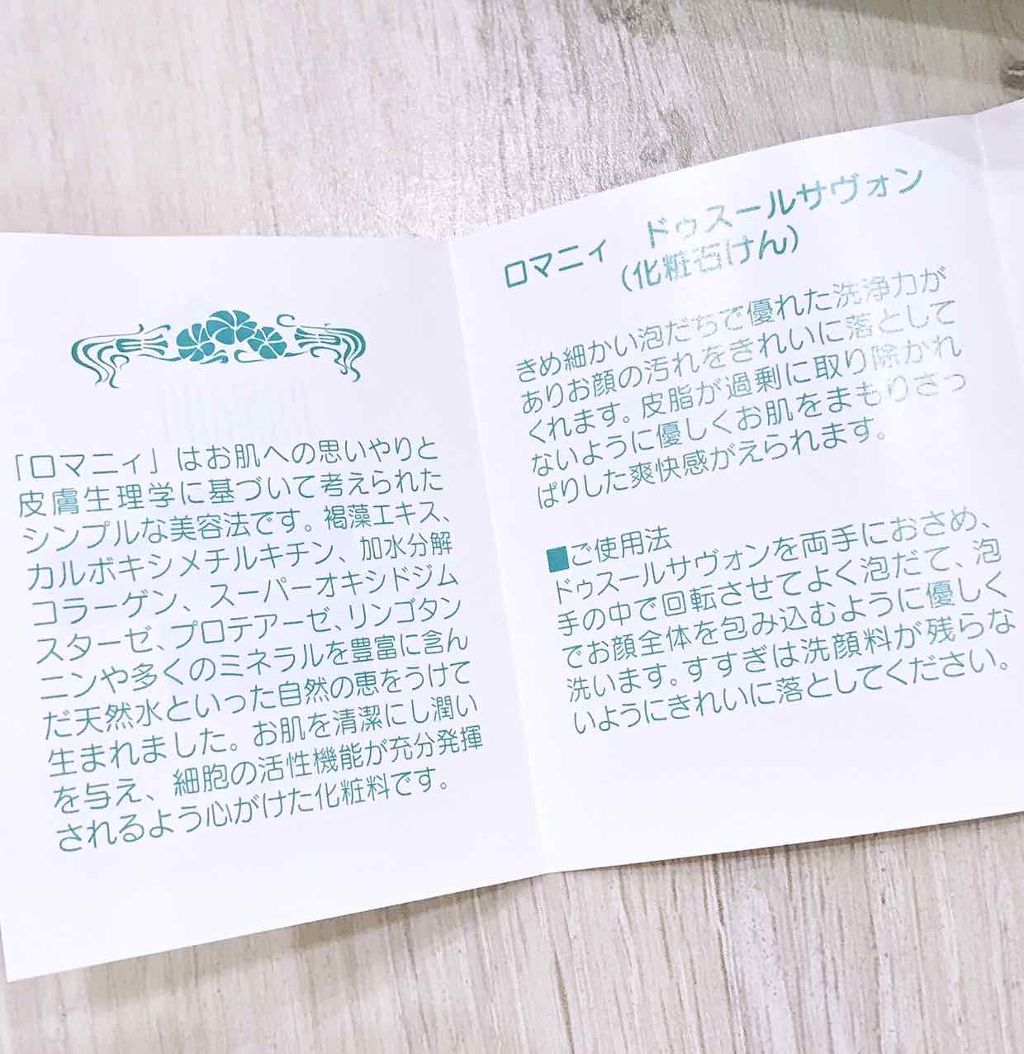 「ロマニィ」はお肌への思いやりと
皮膚生理学に基づいて考えられた
シンプルな美容法です。褐藻エキス、
カルボキシメチルキチン、加水分解
コラーゲン、スーパーオキシドジム
スターゼ、プロテアーゼ、リンゴタン
ニンや多くのミネラルを豊富に含ん
だ天然水といった自然の恵をうけて
生まれました。お肌を清潔にし潤い
を与え、細胞の活性機能が充分発揮
されるよう心がけた化粧料です。
ロマニィ ドゥスールサヴォン
(化粧石けん)
きめ細かい泡だちで優れた洗浄力が
ありお顔の汚れをきれいに落として
くれます。皮脂が過剰に取り除かれ
ないように優しくお肌をまもりさっ
ぱりした爽快感がえられます。
■ご使用法
ドゥスールサヴォンを両手におさめ、
手の中で回転させてよく泡だて、泡
でお顔全体を包み込むように優しく
洗います。すすぎは洗顔料が残らな
いようにきれいに落としてください。